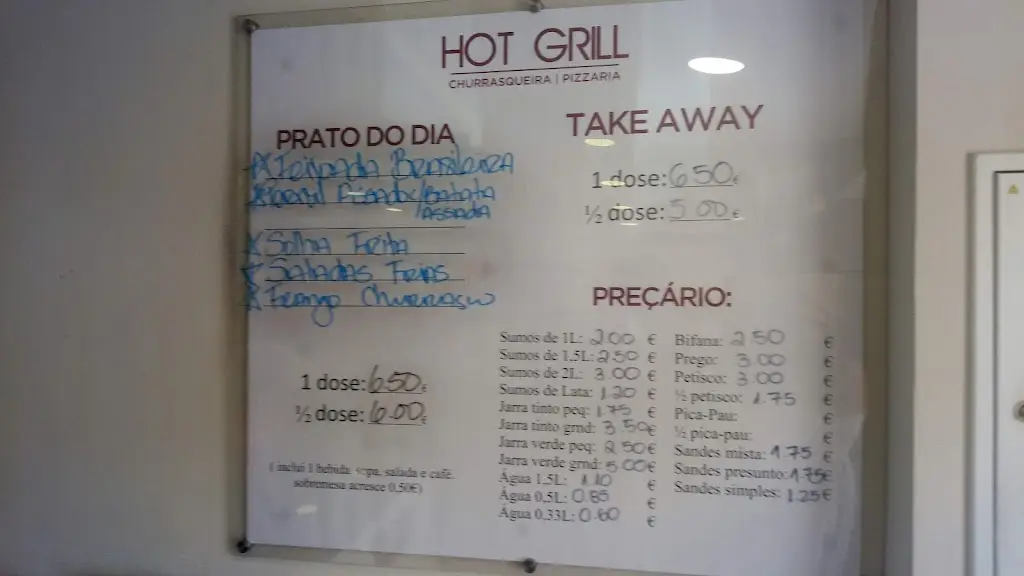 HOT GRILL
CHURRASQUEIRA | PIZZARIA
PRATO DO DIA
Feijoada Brasileira
Assado c/ Batata
Assada
Solha Frita
Saladas Frias
Frango Churrasco
1 dose: 6.50€
½ dose: 6.00€
( inclui 1 bebida, sopa, salada e café.
sobremesa acresce 0,50€)
TAKE AWAY
1 dose: 6.50€
½ dose: 5.00€
PREÇÁRIO:
Sumos de 1L: 2.00 €
Sumos de 1.5L: 2.50 €
Sumos de 2L: 3.00 €
Sumos de Lata: 1.20 €
Jarra tinto peq: 1.75 €
Jarra tinto grnd: 3.50€
Jarra verde peq: 2.50€
Jarra verde grnd: 5.00€
Água 1,5L: 1.10 €
Água 0,5L: 0.85 €
Água 0,33L: 0.60 €
Bifana: 2.50 €
Prego: 3.00 €
Petisco: 3.00 €
½ petisco: 1.75 €
Pica-Pau: €
½ pica-pau: €
Sandes mista: 1.75 €
Sandes presunto: 1.75€
Sandes simples: 1.25€